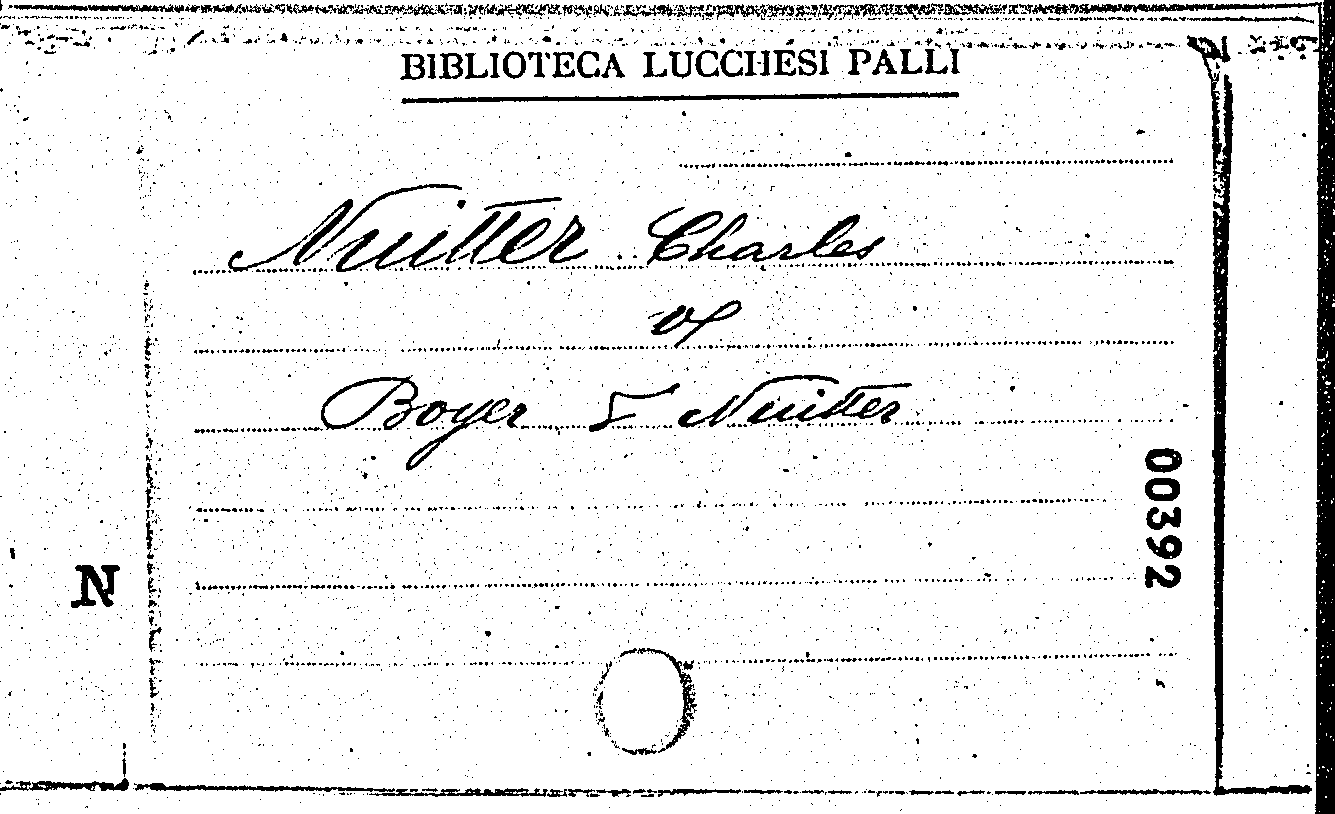 BIBLIOTECA LUCCHESI PALLI
Nuitter Charles
Boyer & Nuitter
00392
N